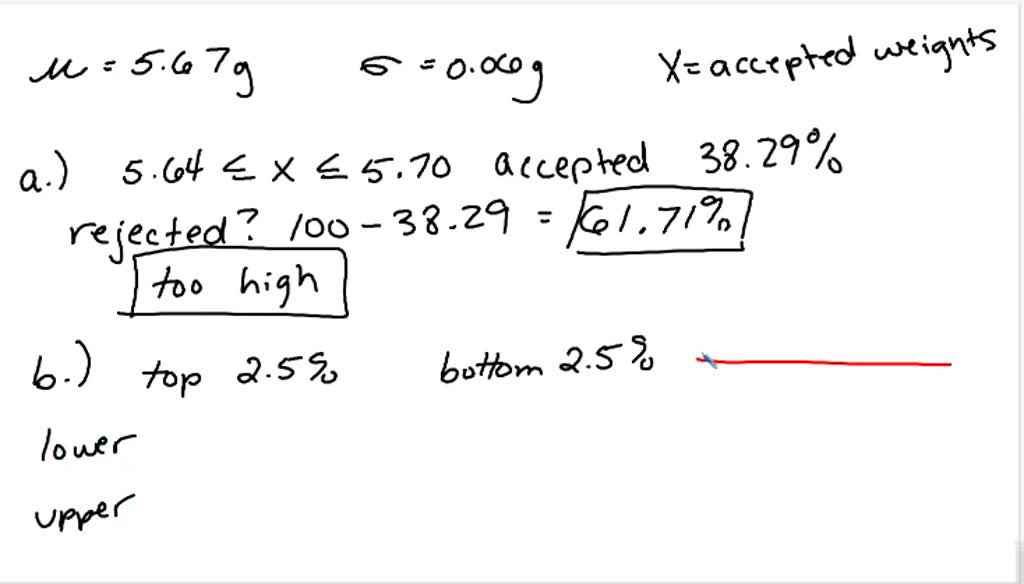 μ = 5.67g σ = 0.06g X = accepted weights
a.) 5.64 ≤ x ≤ 5.70 accepted 38.29%
rejected? 100 - 38.29 = 61.71%
too high
b.) top 2.5% bottom 2.5%
lower
upper